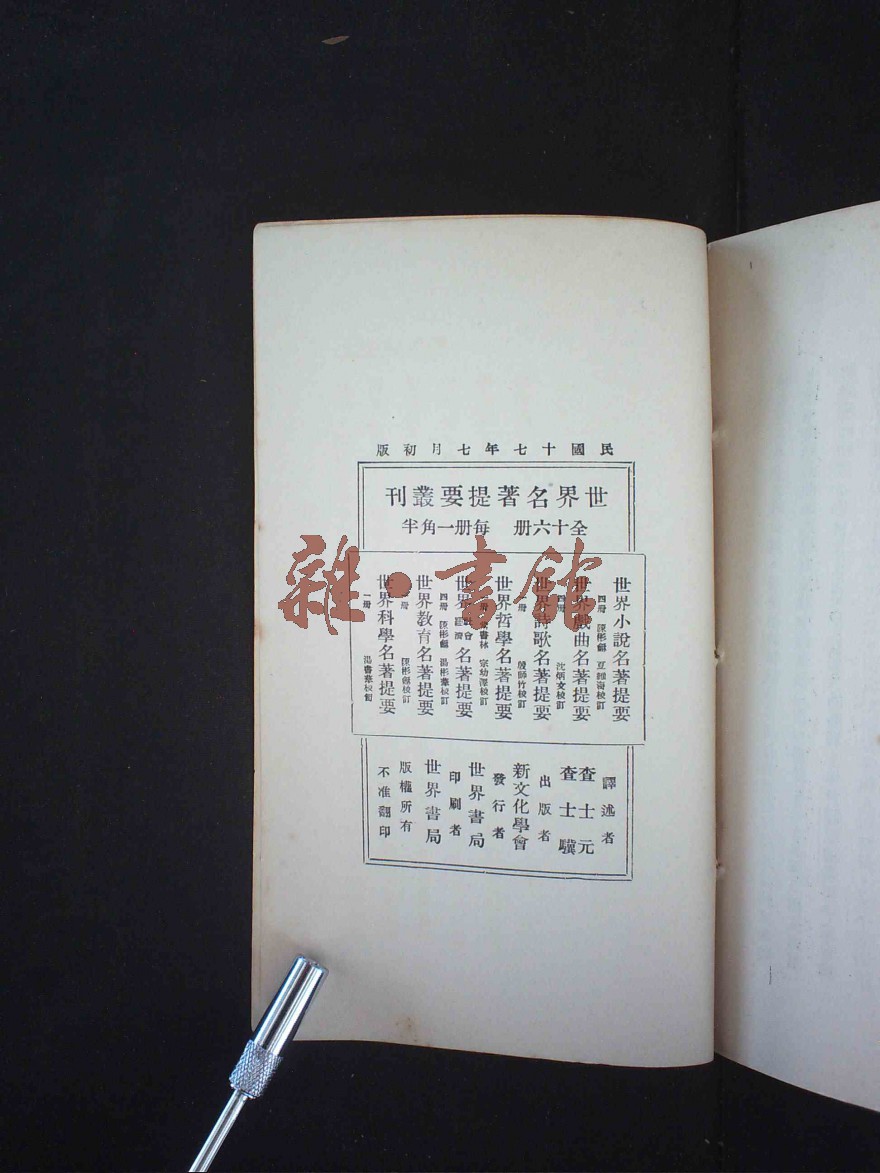 民國十七年七月初版
世界名著提要叢刊
全十六册 每册一角半
世界小說名著提要
四冊 陳彬龢
世界戲曲名著提要
四冊 沈炳文校訂
世界詩歌名著提要
一冊 殷師竹校訂
世界哲學名著提要
宗幼澤校訂
世界社會經濟名著提要
四冊 陳彬龢 湯彬華校訂
世界教育名著提要
一冊 陳彬龢校訂
世界科學名著提要
一冊 湯書華校訂
譯述者
查士元
查士驥
出版者
新文化學會
發行者
世界書局
印刷者
世界書局
版權所有
不准翻印
雜·書館